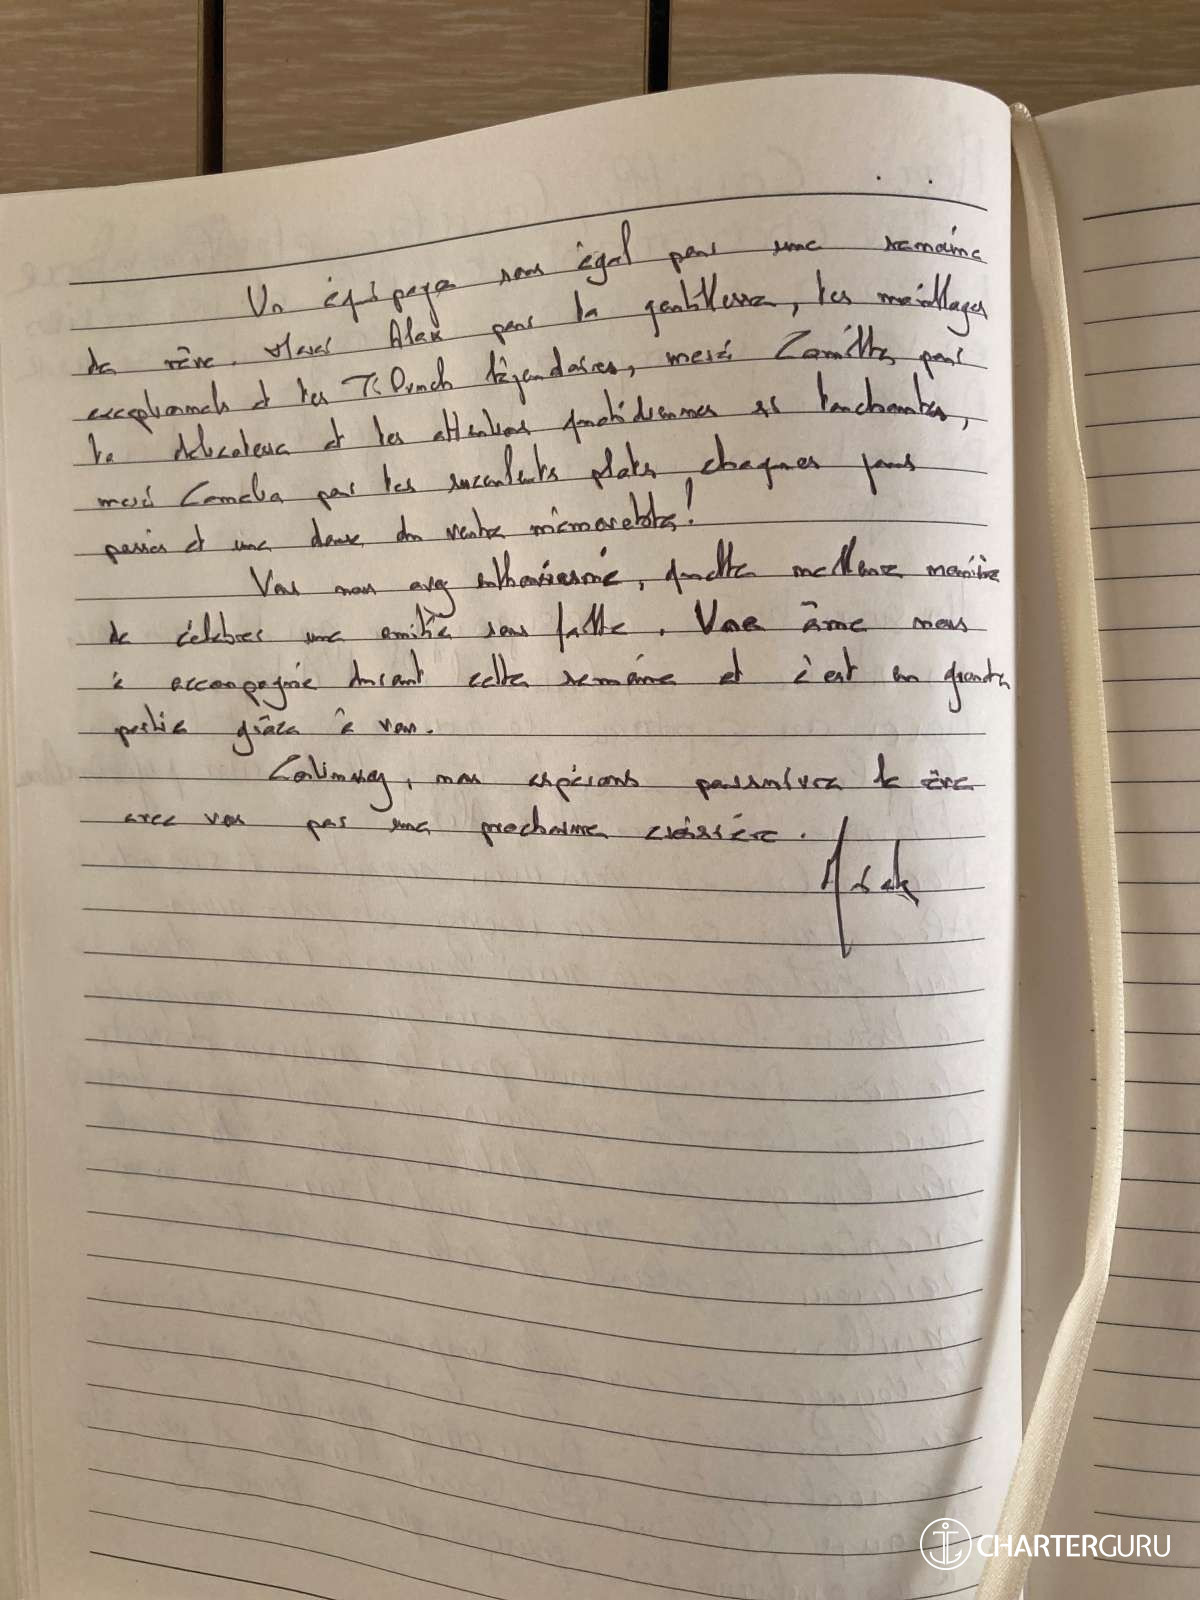 Un équipage sans égal pour une semaine
de rêve. Merci Alex pour ta gentillesse, tes mouillages
exceptionnels et tes Ti Punch légendaires, merci Camille pour
ta délicatesse et tes attentions quotidiennes si touchantes,
merci Camelia par tes succulents plats, chaques jours
passés et une danse du ventre mémorable!
Vous nous avez enthousiasmé, quelle meilleure manière
de célébrer une amitié sans faille. Une âme nous
à accompagné durant cette semaine et c'est en grande
partie grâce à vous.
nous espérons poursuivre le rêve
avec vous par une prochaine croisière.
CHARTERGURU